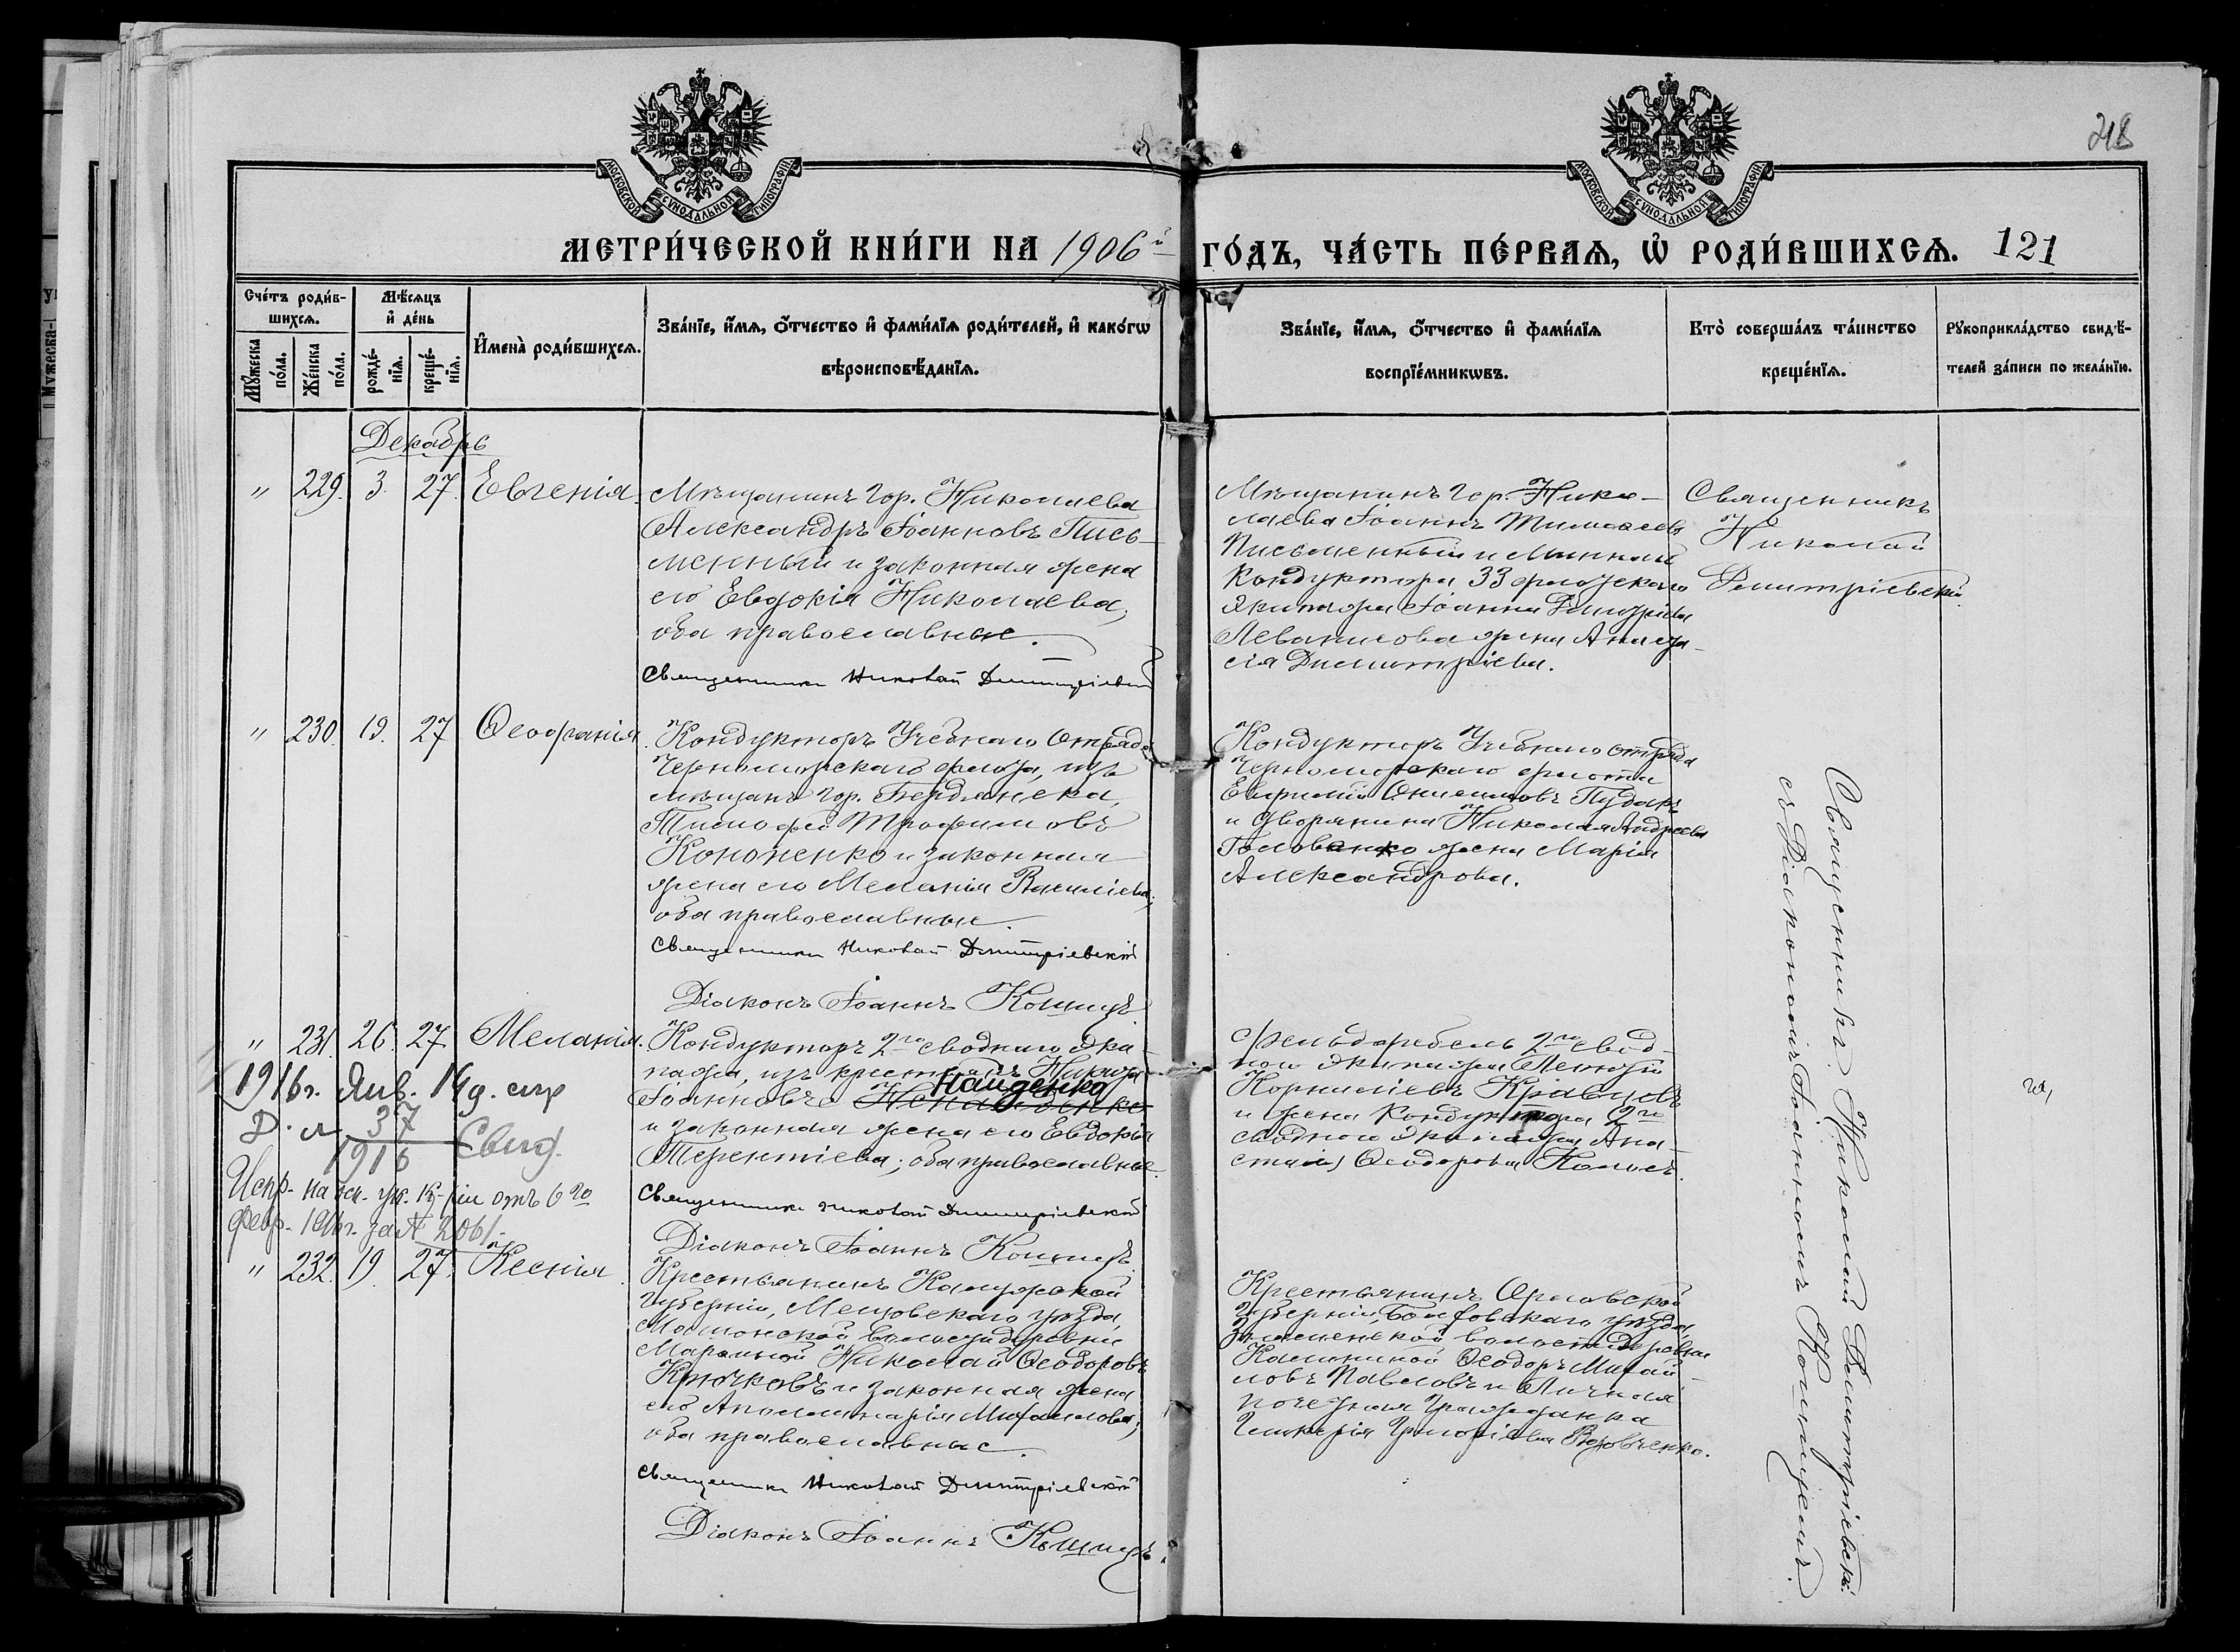 218
МОСКОВСКОЙ СѴНОДАЛЬНОЙ ТИПОГРАФІИ
МОСКОВСКОЙ СѴНОДАЛЬНОЙ ТИПОГРАФІИ
МЕТРИ́ЧЕСКОЙ КНИ́ГИ НА 1906й ГО́ДЪ, ЧА́СТЬ ПЕ́РВАѦ, Ѡ҆ РОДИ́ВШИХСѦ. 121
Сче́тъ роди́в-
шихсѧ.
Мꙋ́жеска по́ла.
Же́нска по́ла.
Мѣ́сѧцъ
и҆ де́нь
рожде́-
нїѧ.
креще́-
нїѧ.
И҆мена̀ роди́вшихсѧ.
Зва́нїе, и҆́мѧ, ѻ҆́тчество и҆ фами́лїѧ роди́телей, и҆ како́гѡ
вѣроисповѣ́данїѧ.
Зва́нїе, и҆́мѧ, ѻ҆́тчество и҆ фами́лїѧ
воспрїе́мникѡвъ.
Кто̀ соверша́лъ та́инство
креще́нїѧ.
Рꙋкоприкла́дство свидѣ́-
телей за́писи по жела́нїю.
Декабрь
" 229. 3. 27. Евгенія.
Мѣщанинъ гор. Николаева
Александръ Іоанновъ Пись-
менный и законная жена
его Евдокія Николаева,
оба православные.
Священникъ Николай Димитріевскій
Мѣщанинъ гор. Нико-
лаева Іоаннъ Тимоѳеевъ
Письменный и Минный
Кондуктора 33 флотскаго
Экипажа Іоанна Димитріева
жена Анаста-
сія Димитріева.
Священникъ
Николай
Димитріевскій.
" 230. 19. 27 Ѳеофанія.
Кондукторъ Учебнаго Отряда
Черноморскаго флота, изъ
мѣщанъ гор. Бердянска,
Тимофей Трофимовъ
Кононенко и законная
жена его Меланія Василіева,
оба православные.
Священникъ Николай Димитріевскій
Діаконъ Іоаннъ Кошицъ.
Кондукторъ Учебнаго отряда
Черноморскаго флота
Евфимій Онисимовъ
и дворянина Николая Андреева
Головенко жена Марія
Александрова.
" 231. 26. 27. Меланія.
Кондукторъ 2го своднаго Эки-
пажа, изъ крестьянъ
Найденко
Іоанновъ Ненайденко
и законная жена его Евдокія
Терентіева; оба православные.
Священникъ Николай Димитріевскій
Діаконъ Іоаннъ Кошицъ.
Фельдфебель 2го свод-
наго Экипажа
Корниліевъ Кравцовъ
и жена Кондуктора 2го
своднаго Экипажа Ана-
стасія Ѳеодорова
1916г. Янв. 14д.
37
1916
Свид.
Испр. на осн. ук. К-ріи отъ 6го
Февр. 1916г. за № 2061.
" 232. 19. 27. Ксенія.
Крестьянинъ Калужской
губерніи, Мещовскаго уѣзда,
волости деревни
Николай Ѳеодоровъ
Крючковъ и законная жена
его Аполлинарія Михаилова,
оба православные.
Священникъ Николай Димитріевскій
Діаконъ Іоаннъ Кошицъ.
Крестьянинъ Орловской
губерніи, Болховскаго уѣзда,
Знаменской волости деревни
Ѳеодоръ Михаи-
ловъ Павловъ и Личная
почетная гражданка
Гликерія Григоріева
Священникъ Николай Димитріевскій
съ Діакономъ Іоанномъ Кошицемъ.